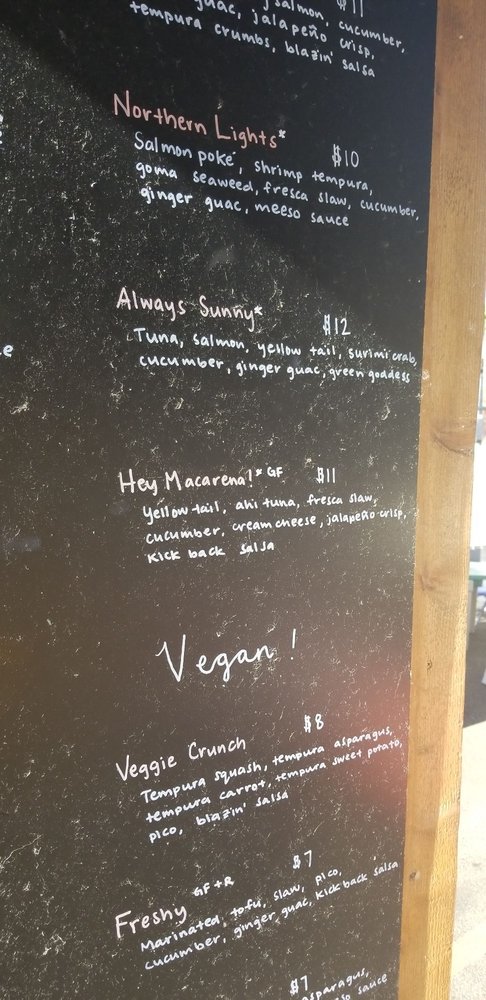 guac, jalapeño crisp,
salmon, cucumber,
$11
tempura crumbs, blazin' salsa
Northern Lights*
$10
Salmon poke, shrimp tempura,
goma seaweed, fresca slaw, cucumber,
ginger guac, meeso sauce
Always Sunny*
$12
Tuna, salmon, yellow tail, surimi crab,
cucumber, ginger guac, green goddess
Hey Macarena!* GF $11
Yellow tail, ahi tuna, fresca slaw,
cucumber, cream cheese, jalapeño crisp,
Kick back salsa
Vegan!
$8
Veggie Crunch
Tempura squash, tempura asparagus,
tempura carrot, tempura sweet potato,
pico, blazin' salsa
$7
Freshy GF+R
Marinated tofu, slaw, pico,
cucumber, ginger guac, Kick back salsa
$7
asparagus,
sauce